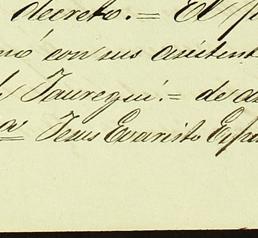 decreto. = El
con sus asistent
Jauregui. = de a
Jesus Evaristo Espa